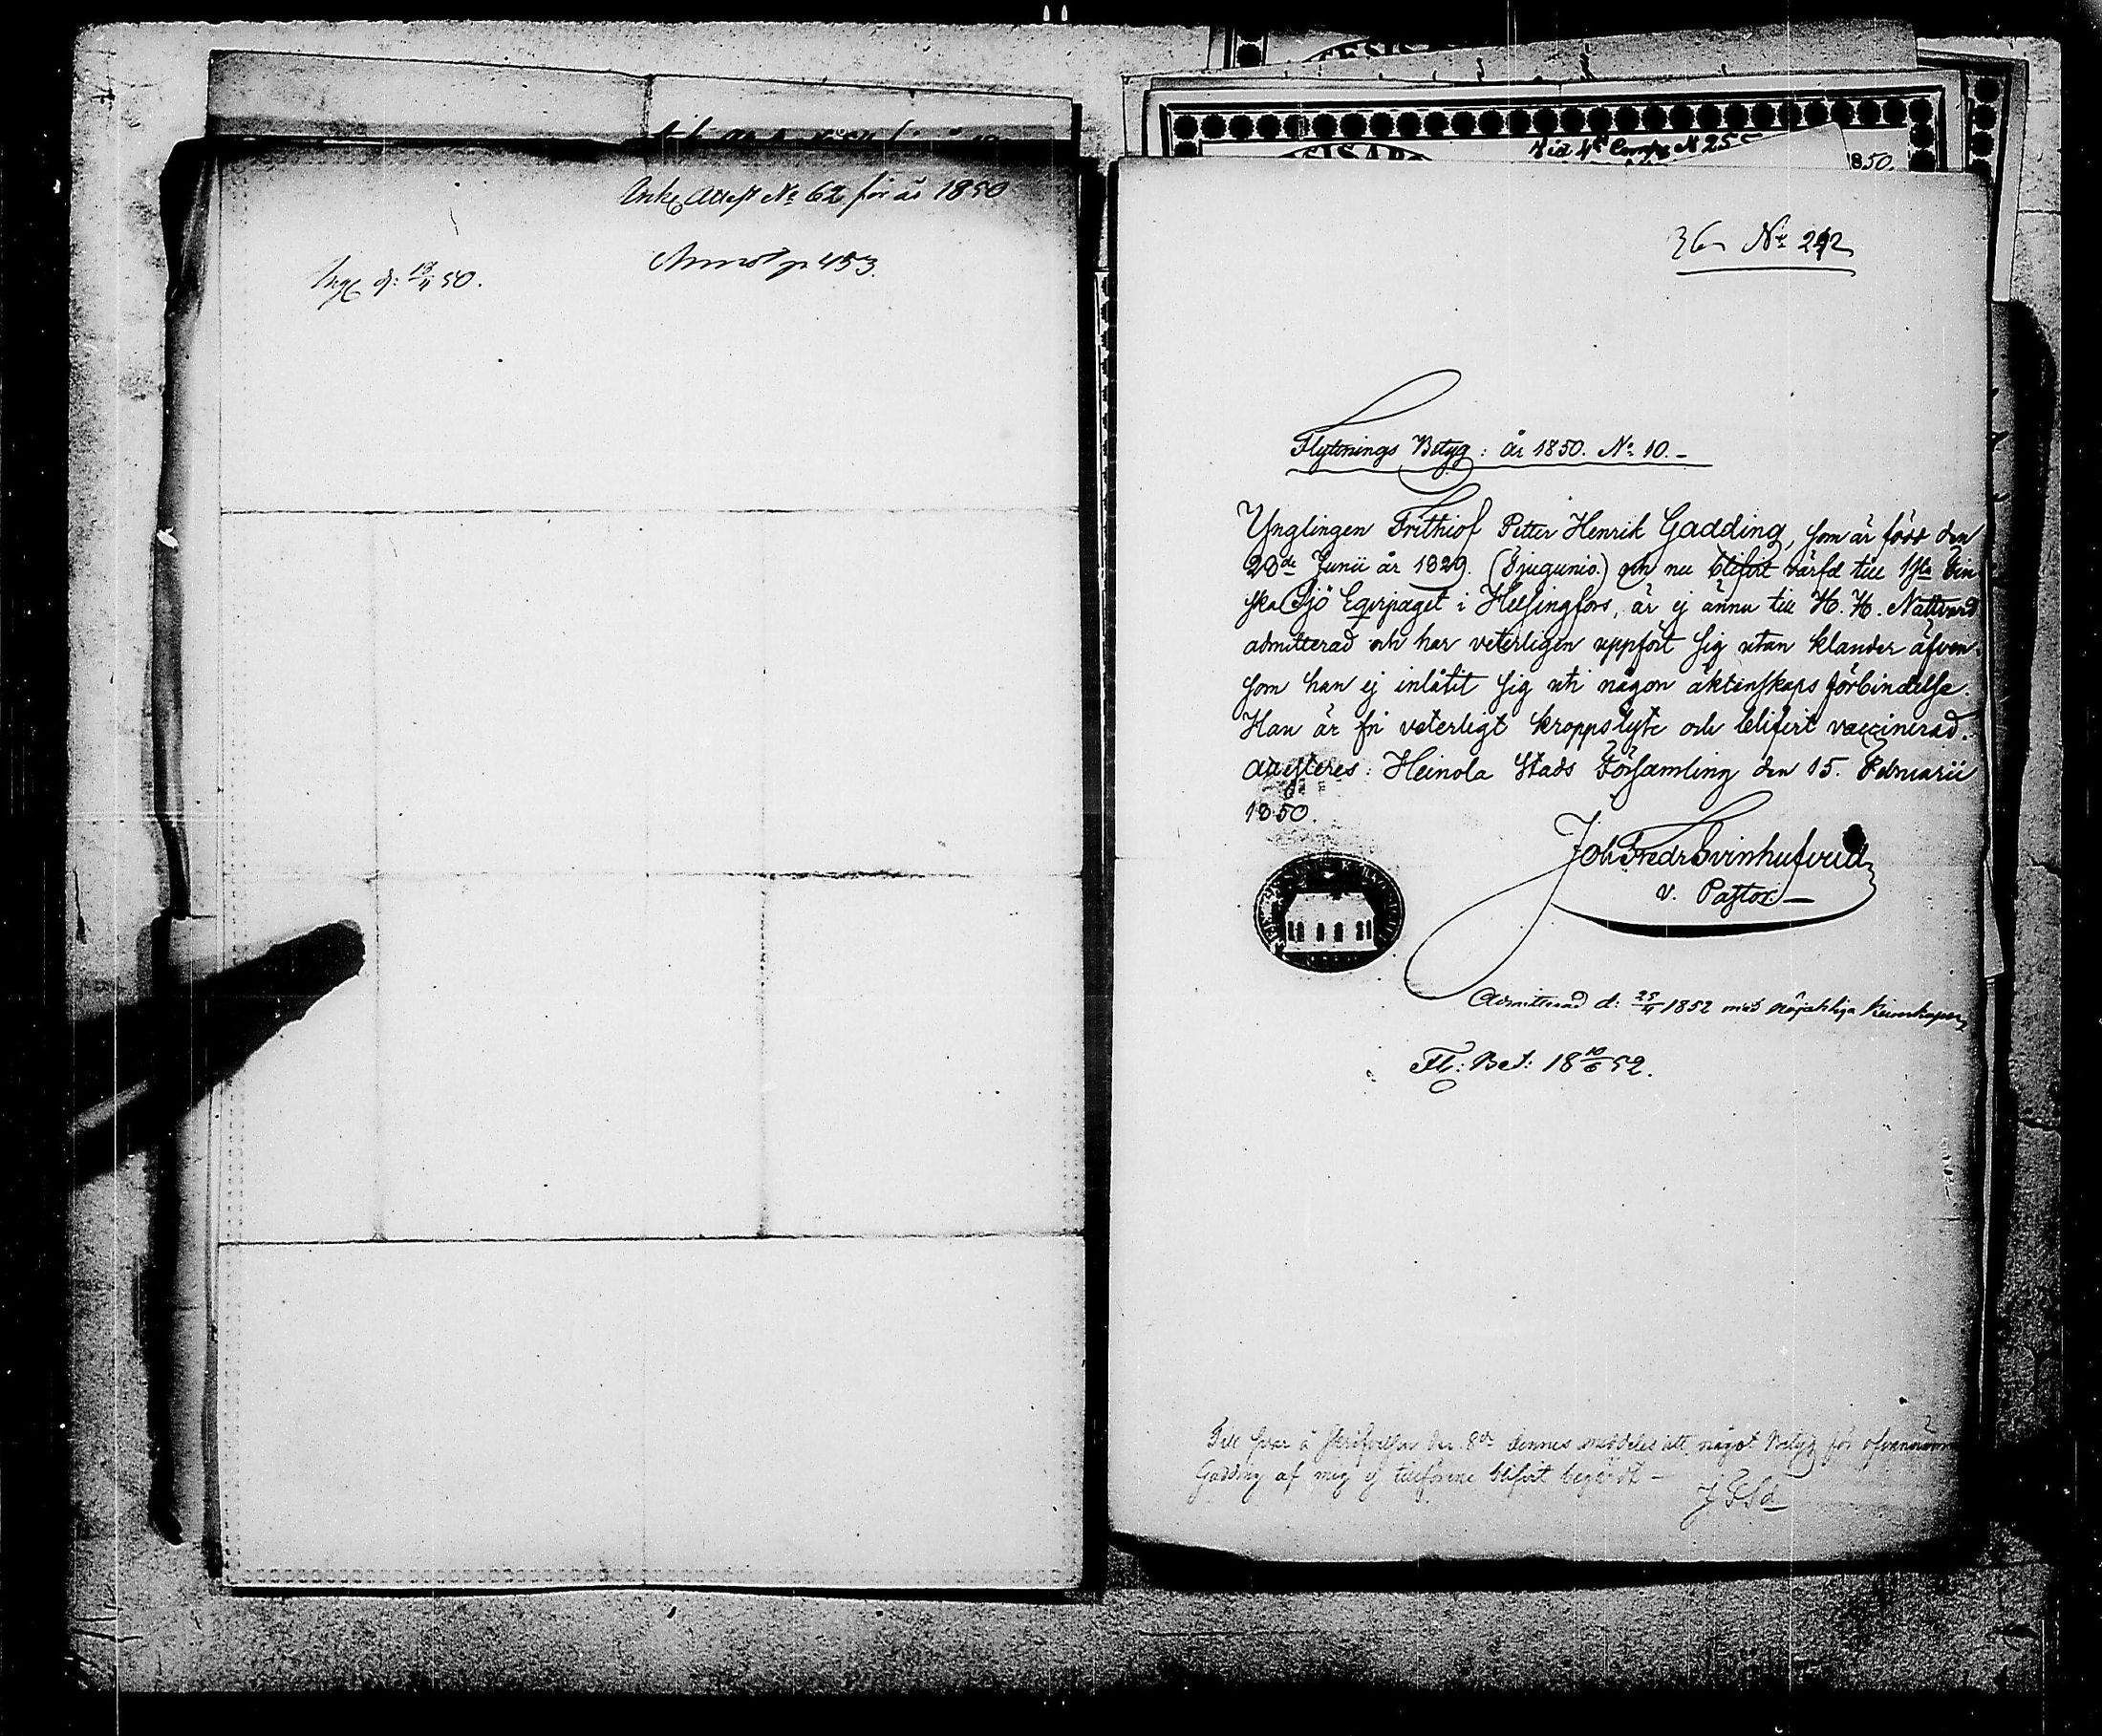 Attest No 62 för år 1850
Annot p 453.
Ing d: 13/4 50.
850.
36 No 242
Flyttnings Betyg: år 1850. No 10.-
Ynglingen Frithiof Petter Henrik Gadding, som är född den
28de Junii år 1829. (Tjugunio.) och nu blifvit värfd till 1sta Fin
ska Sjö Eqvipaget i Helsingfors, är ej ännu till H. H. Nattvard
admitterad och har veterligen uppfört sig utan klander äfven-
som han ej inlåtit sig uti någon äktenskaps förbindelse.
Han är fri veterligt kroppslyte och blifvit vaccinerad.
attesteres: Heinola Stads Församling den 15. Februarii
1850.
Joh Fredr Svinhufvud
v. Pastor.
Admitterad d: 25/4 1852 med nöjaktiga kunskaper
Fl: Bet: 18 10/6 52.
Till svar å skrifvelsen den 8de dennes meddeles att något Betyg för ofvannämnde
Gadding af mig ej tillförene blifvit begärdt -
J F Sd